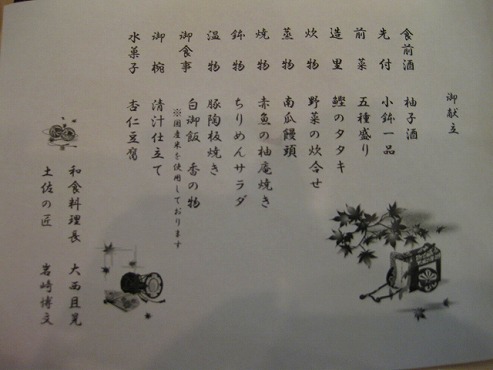 御献立
食前酒 柚子酒
先付 小鉢一品
前菜 五種盛り
造里 鰹のタタキ
炊物 野菜の炊合せ
蒸物 南瓜饅頭
焼物 赤魚の柚庵焼き
鉢物 ちりめんサラダ
温物 豚陶板焼き
御食事 白御飯 香の物
※国産米を使用しております
御椀 清汁仕立て
水菓子 杏仁豆腐
和食料理長 大西且晃
土佐の匠 岩崎博文